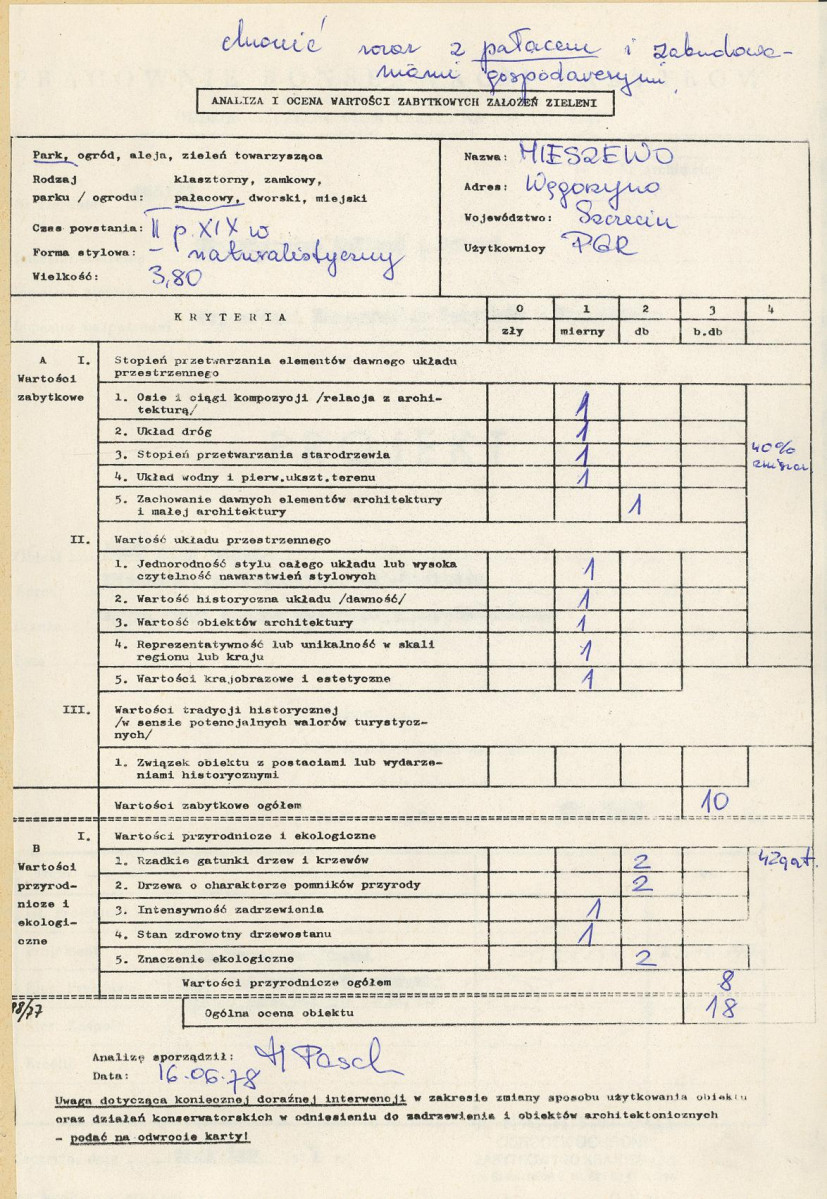 chronić wraz z pałacem i zabudowa-
niami gospodarczymi,
ANALIZA I OCENA WARTOŚCI ZABYTKOWYCH ZAŁOŻEŃ ZIELENI
Park, ogród, aleja, zieleń towarzysząca
Rodzaj klasztorny, zamkowy,
parku / ogrodu: pałacowy, dworski, miejski
Czas powstania: II p. XIX w
Forma stylowa: – naturalistyczny
Wielkość: 3,80
Nazwa: MIESZEWO
Adres: Węgorzyno
Województwo: Szczecin
Użytkownicy PGR
KRYTERIA
0 1 2 3 4
zły mierny db b.db
A I. Stopień przetwarzania elementów dawnego układu
Wartości przestrzennego
zabytkowe 1. Osie i ciągi kompozycji /relacja z archi-
tekturą/ 1
2. Układ dróg 1
3. Stopień przetwarzania starodrzewia 1
40%
4. Układ wodny i pierw.ukszt.terenu 1
5. Zachowanie dawnych elementów architektury
i małej architektury 1
II. Wartość układu przestrzennego
1. Jednorodność stylu całego układu lub wysoka
czytelność nawarstwień stylowych 1
2. Wartość historyczna układu /dawność/ 1
3. Wartość obiektów architektury 1
4. Reprezentatywność lub unikalność w skali
regionu lub kraju 1
5. Wartości krajobrazowe i estetyczne 1
III. Wartości tradycji historycznej
/w sensie potencjalnych walorów turystycz-
nych/
1. Związek obiektu z postaciami lub wydarze-
niami historycznymi
Wartości zabytkowe ogółem 10
B I. Wartości przyrodnicze i ekologiczne
Wartości 1. Rzadkie gatunki drzew i krzewów 2 42gat.
przyrod- 2. Drzewa o charakterze pomników przyrody 2
nicze i 3. Intensywność zadrzewienia 1
ekologi- 4. Stan zdrowotny drzewostanu 1
czne 5. Znaczenie ekologiczne 2
Wartości przyrodnicze ogółem 8
Ogólna ocena obiektu 18
Analizę sporządził: H Pasch
Data: 16.06.78
Uwaga dotycząca koniecznej doraźnej interwencji w zakresie zmiany sposobu użytkowania obiektu
oraz działań konserwatorskich w odniesieniu do zadrzewienia i obiektów architektonicznych
– podać na odwrocie karty!